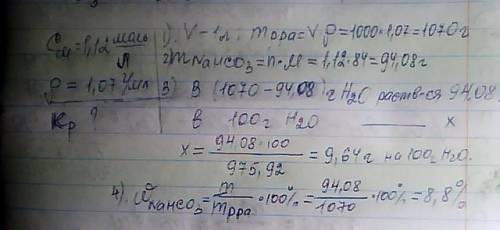 Cм = 1,12 моль/л
ρ = 1,07 г/мл
Кр ?
1). V - 1л; mрра = Vρ = 1000·1,07 = 1070 г
2) mNaHCO3 = n·M = 1,12·84 = 94,08 г
3) В (1070 - 94,08) г H2O раств-ся 94,08
в 100 г H2O —— x
x = 94,08·100 / 975,92 = 9,64 г на 100 г H2O.
4). ωNaHCO3 = m / mрра · 100% = 94,08 / 1070 · 100% = 8,8%